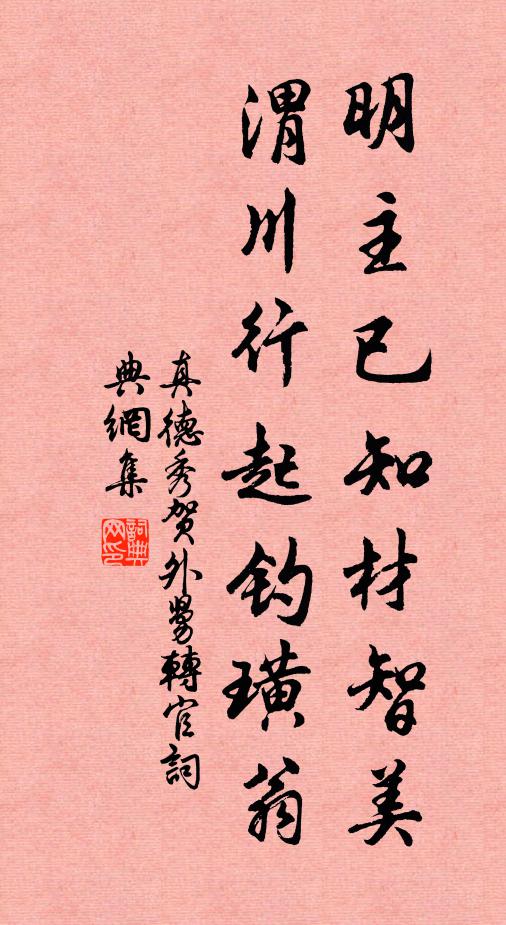 明主已知材智美
渭川行起钓璜翁
真德秀贺外舅轉官詞
典網集
詞典
网印